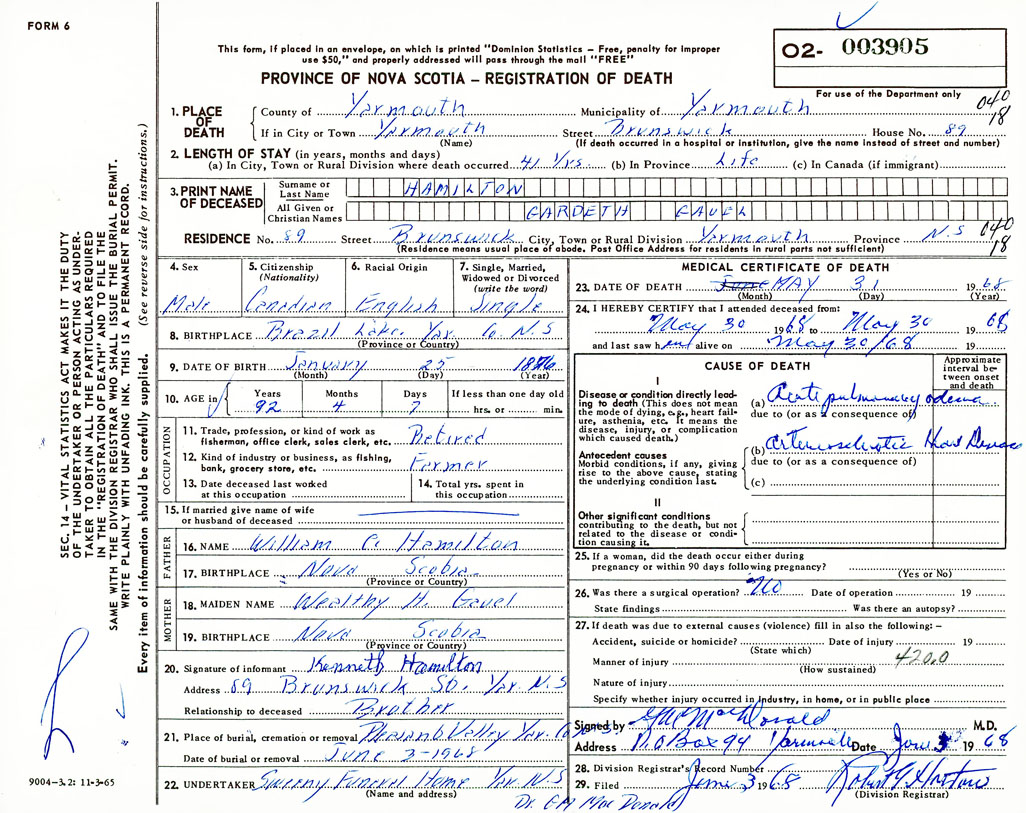 FORM 6
This form, if placed in an envelope, on which is printed "Dominion Statistics – Free, penalty for improper
use $50," and properly addressed will pass through the mail "FREE"
PROVINCE OF NOVA SCOTIA – REGISTRATION OF DEATH
O2- 003905
For use of the Department only
040
18
1. PLACE OF DEATH
County of Yarmouth Municipality of Yarmouth
If in City or Town Yarmouth Street Brunswick House No. 89
(Name) (If death occurred in a hospital or institution, give the name instead of street and number)
2. LENGTH OF STAY (in years, months and days)
(a) In City, Town or Rural Division where death occurred 41 Yrs. (b) In Province Life (c) In Canada (if immigrant)
3. PRINT NAME OF DECEASED
Surname or Last Name HAMILTON
All Given or Christian Names GARDETH GAVEL
RESIDENCE No. 89 Street Brunswick City, Town or Rural Division Yarmouth Province N.S
040
18
(Residence means usual place of abode. Post Office Address for residents in rural parts not sufficient)
4. Sex Male
5. Citizenship (Nationality) Canadian
6. Racial Origin English
7. Single, Married, Widowed or Divorced (write the word) Single
8. BIRTHPLACE Brazil Lake, Yar. Co. N.S
(Province or Country)
9. DATE OF BIRTH January 25 1876
(Month) (Day) (Year)
10. AGE in Years 92 Months 4 Days 7 If less than one day old hrs. or min.
OCCUPATION
11. Trade, profession, or kind of work as fisherman, office clerk, sales clerk, etc. Retired
12. Kind of industry or business, as fishing, bank, grocery store, etc. Farmer
13. Date deceased last worked at this occupation
14. Total yrs. spent in this occupation
15. If married give name of wife or husband of deceased
FATHER
16. NAME William C. Hamilton
17. BIRTHPLACE Nova Scotia
(Province or Country)
MOTHER
18. MAIDEN NAME Wealthy H. Gavel
19. BIRTHPLACE Nova Scotia
(Province or Country)
20. Signature of informant Kenneth Hamilton
Address 89 Brunswick St. Yar. N.S
Relationship to deceased Brother
21. Place of burial, cremation or removal Pleasant Valley Yar. Co N.S
Date of burial or removal June 3-1968
22. UNDERTAKER Sweeny Funeral Home Yar. N.S
(Name and address)
Dr. G M Mac Donald
MEDICAL CERTIFICATE OF DEATH
23. DATE OF DEATH June MAY 31 1968
(Month) (Day) (Year)
24. I HEREBY CERTIFY that I attended deceased from:
May 30 1968 to May 30 1968
and last saw him alive on May 30/68 19
CAUSE OF DEATH
Approximate interval between onset and death
I
Disease or condition directly leading to death (This does not mean the mode of dying, e.g., heart failure, asthenia, etc. It means the disease, injury, or complication which caused death.)
(a) Acute pulmonary edema
due to (or as a consequence of)
Antecedent causes
Morbid conditions, if any, giving rise to the above cause, stating the underlying condition last.
(b) Arteriosclerotic Heart Disease
due to (or as a consequence of)
(c)
II
Other significant conditions
contributing to the death, but not related to the disease or condition causing it.
25. If a woman, did the death occur either during
pregnancy or within 90 days following pregnancy?
(Yes or No)
26. Was there a surgical operation? No Date of operation 19
State findings Was there an autopsy?
27. If death was due to external causes (violence) fill in also the following: –
Accident, suicide or homicide? Date of injury 19
(State which)
Manner of injury 420.0
(How sustained)
Nature of injury
Specify whether injury occurred in industry, in home, or in public place
Signed by G M MacDonald M.D.
Address P.O Box 94 Yarmouth Date June 3 1968
28. Division Registrar's Record Number
29. Filed June 3 1968
(Division Registrar)
SEC. 14 – VITAL STATISTICS ACT MAKES IT THE DUTY
OF THE UNDERTAKER OR PERSON ACTING AS UNDER-
TAKER TO OBTAIN ALL THE PARTICULARS REQUIRED
IN THE "REGISTRATION OF DEATH" AND TO FILE THE
SAME WITH THE DIVISION REGISTRAR WHO SHALL ISSUE THE BURIAL PERMIT.
WRITE PLAINLY WITH UNFADING INK. THIS IS A PERMANENT RECORD.
Every item of information should be carefully supplied. (See reverse side for instructions.)
9004-3.2: 11-3-65